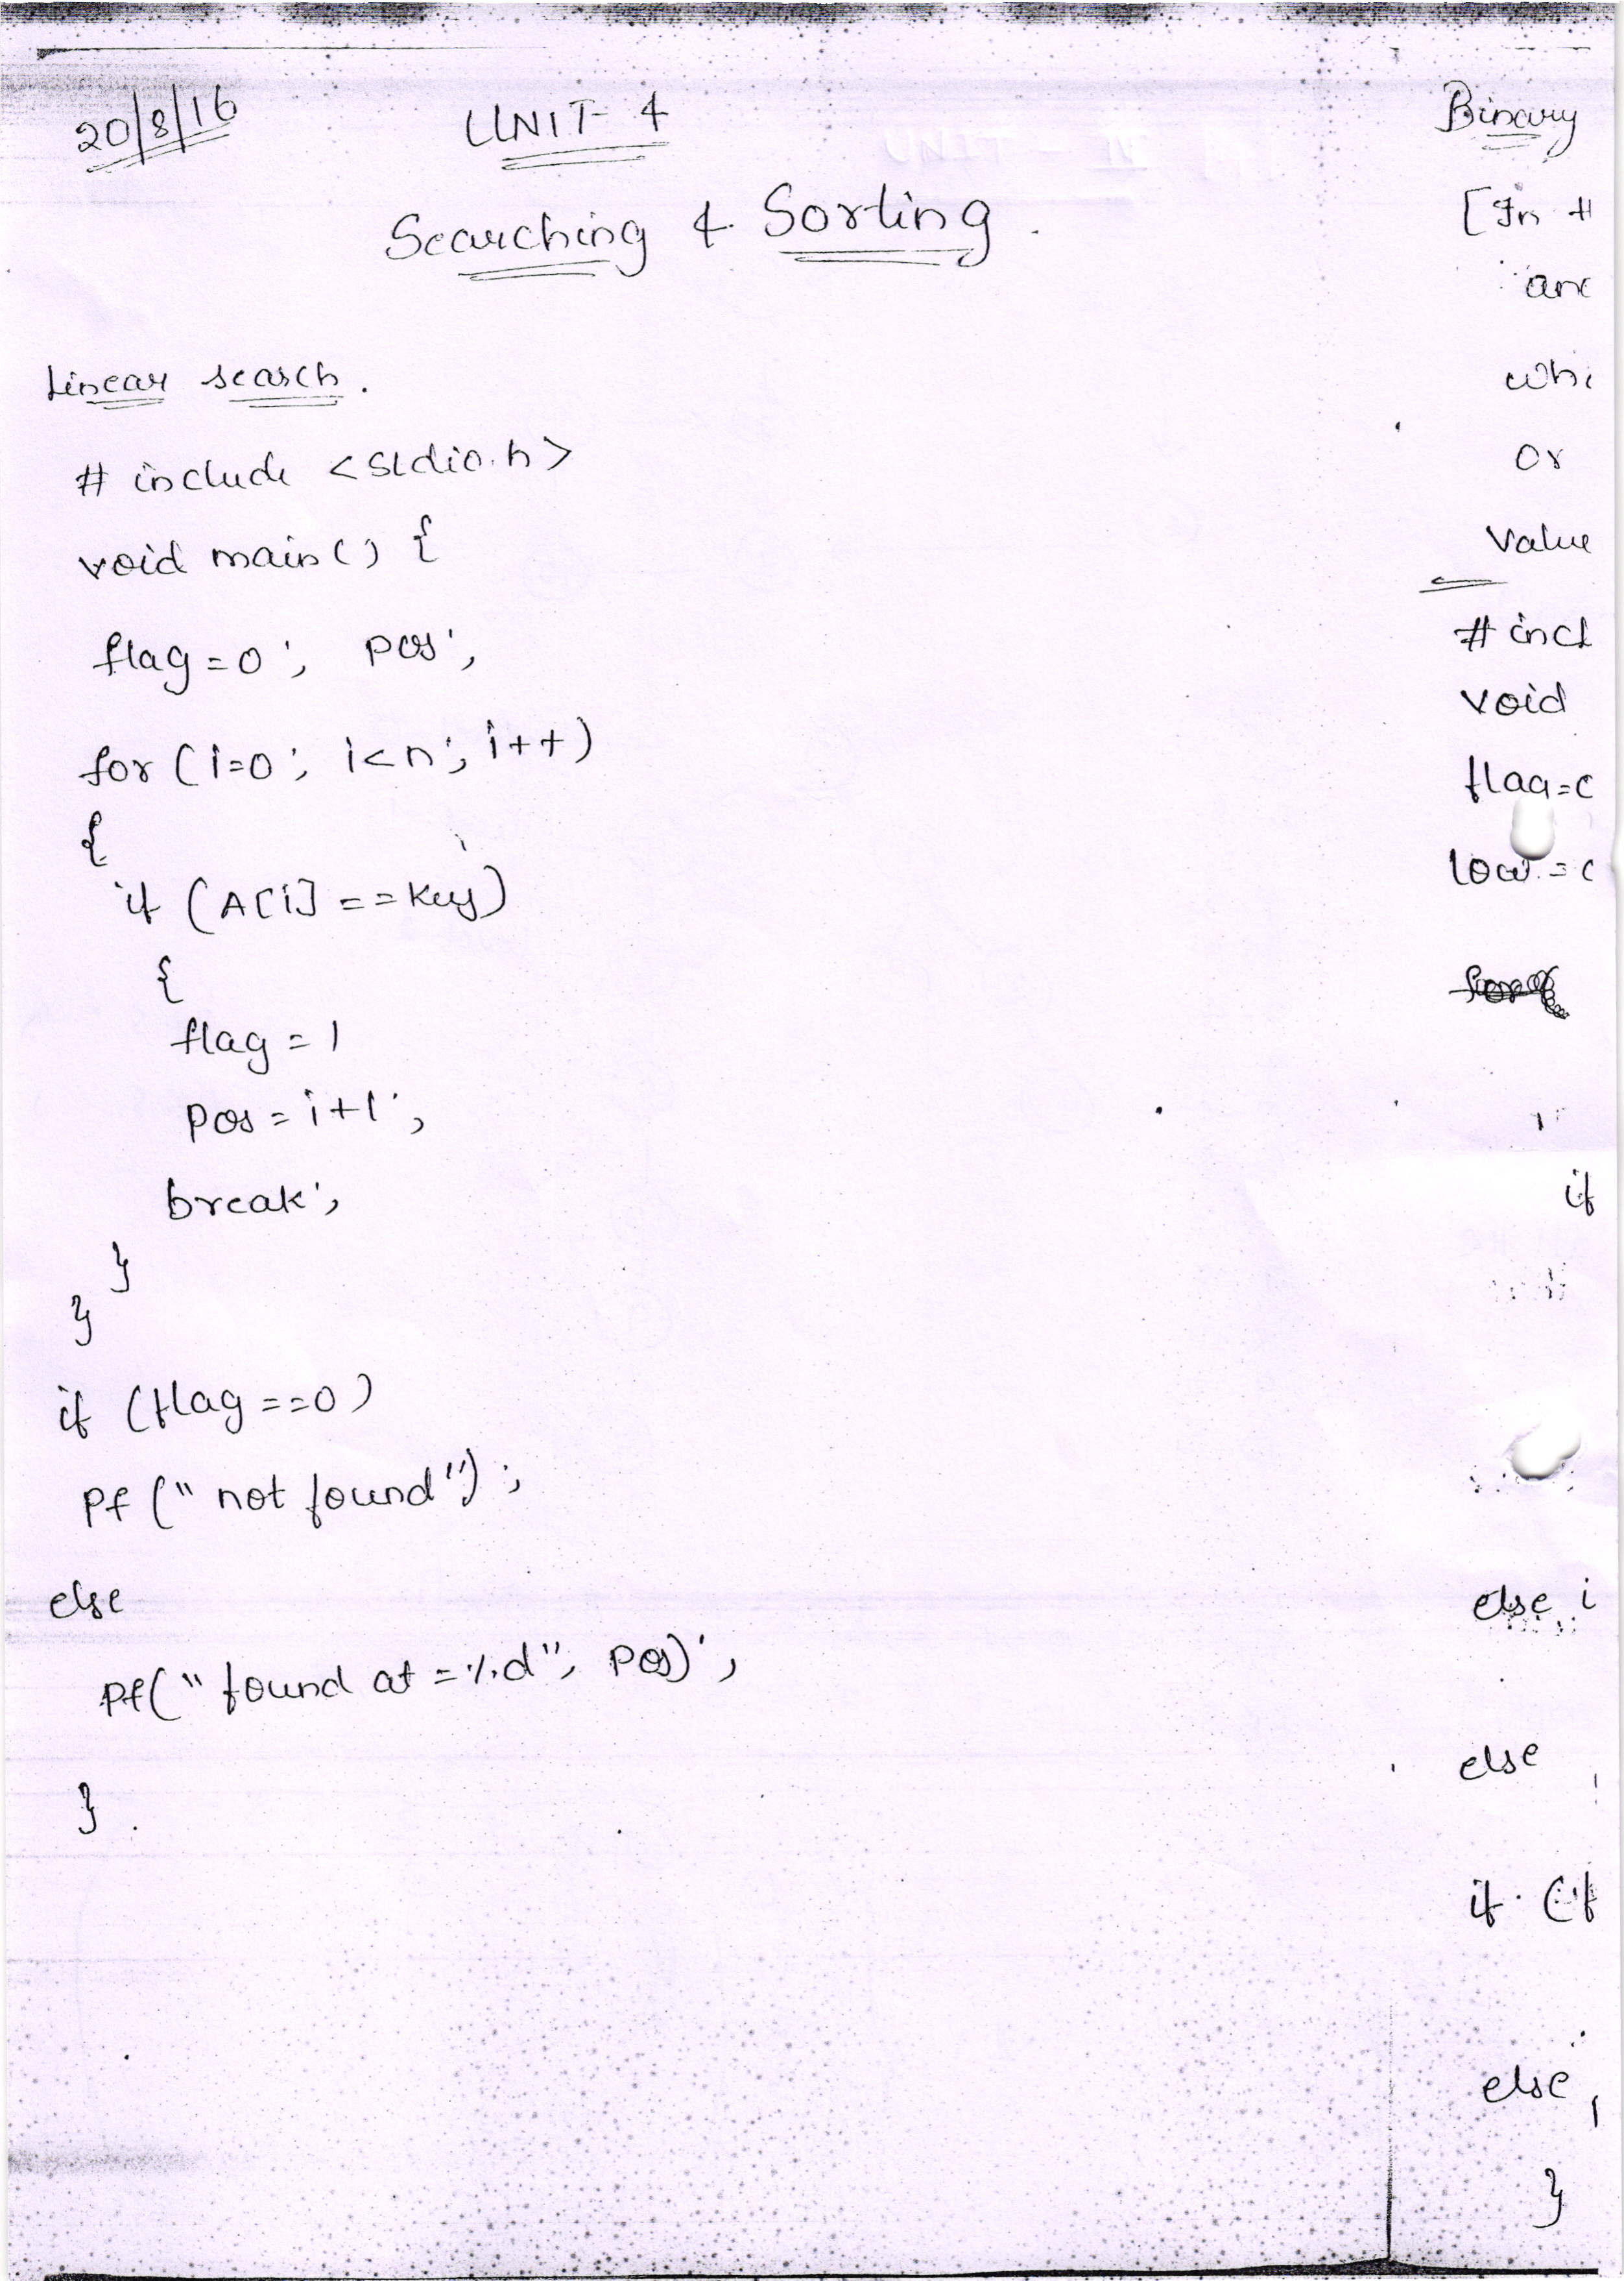 20/8/16
UNIT-4
Searching & Sorting.
Linear search.
# include <stdio.h>
void main() {
flag=0; pos;
for (i=0; i<n; i++)
{
if (A[i]==key)
{
flag=1
pos=i+1;
break;
}
}
if (flag==0)
Pf (" not found");
else
Pf(" found at =%d", pos);
}.
Binary
[In
or
Value
# incl
void
flag=
low=
if
else i
else
if (f
else
}